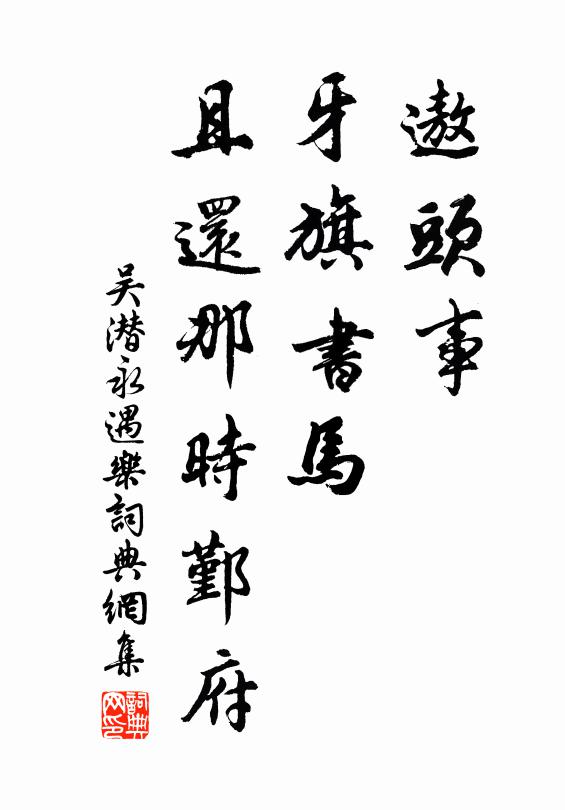 遨頭事
牙旗書馬
且還那時鄞府
吴潜永遇樂詞典網集
詞典网印